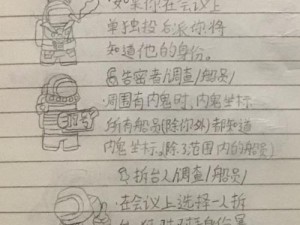 如果你在会议上
单独投石派你将
知道他的身份。
告密者/调查/船员/
周围有内鬼时,内鬼坐标
所有船员(除你外)都知道
内鬼坐标,(除3范围内的船员)
拆台人/调查/船员/
在会议上选择一人拆